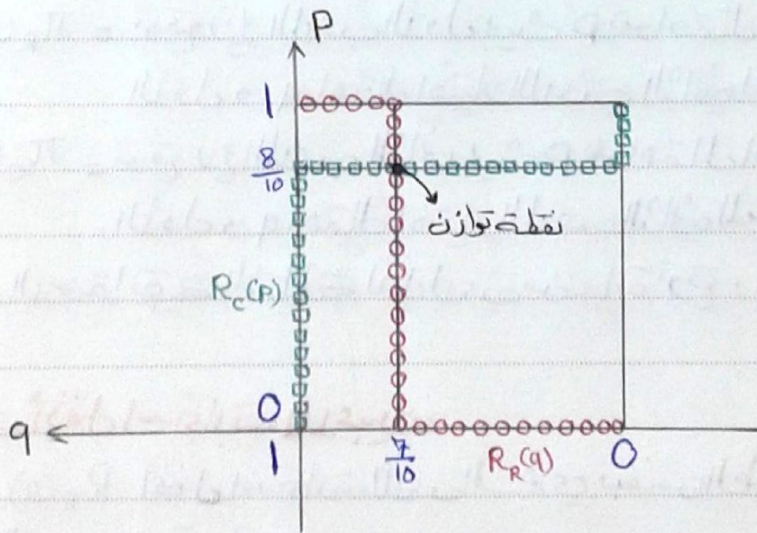 P
1
8/10
نقطة توازن
R_C(P)
0
q
1
7/10
R_R(q)
0